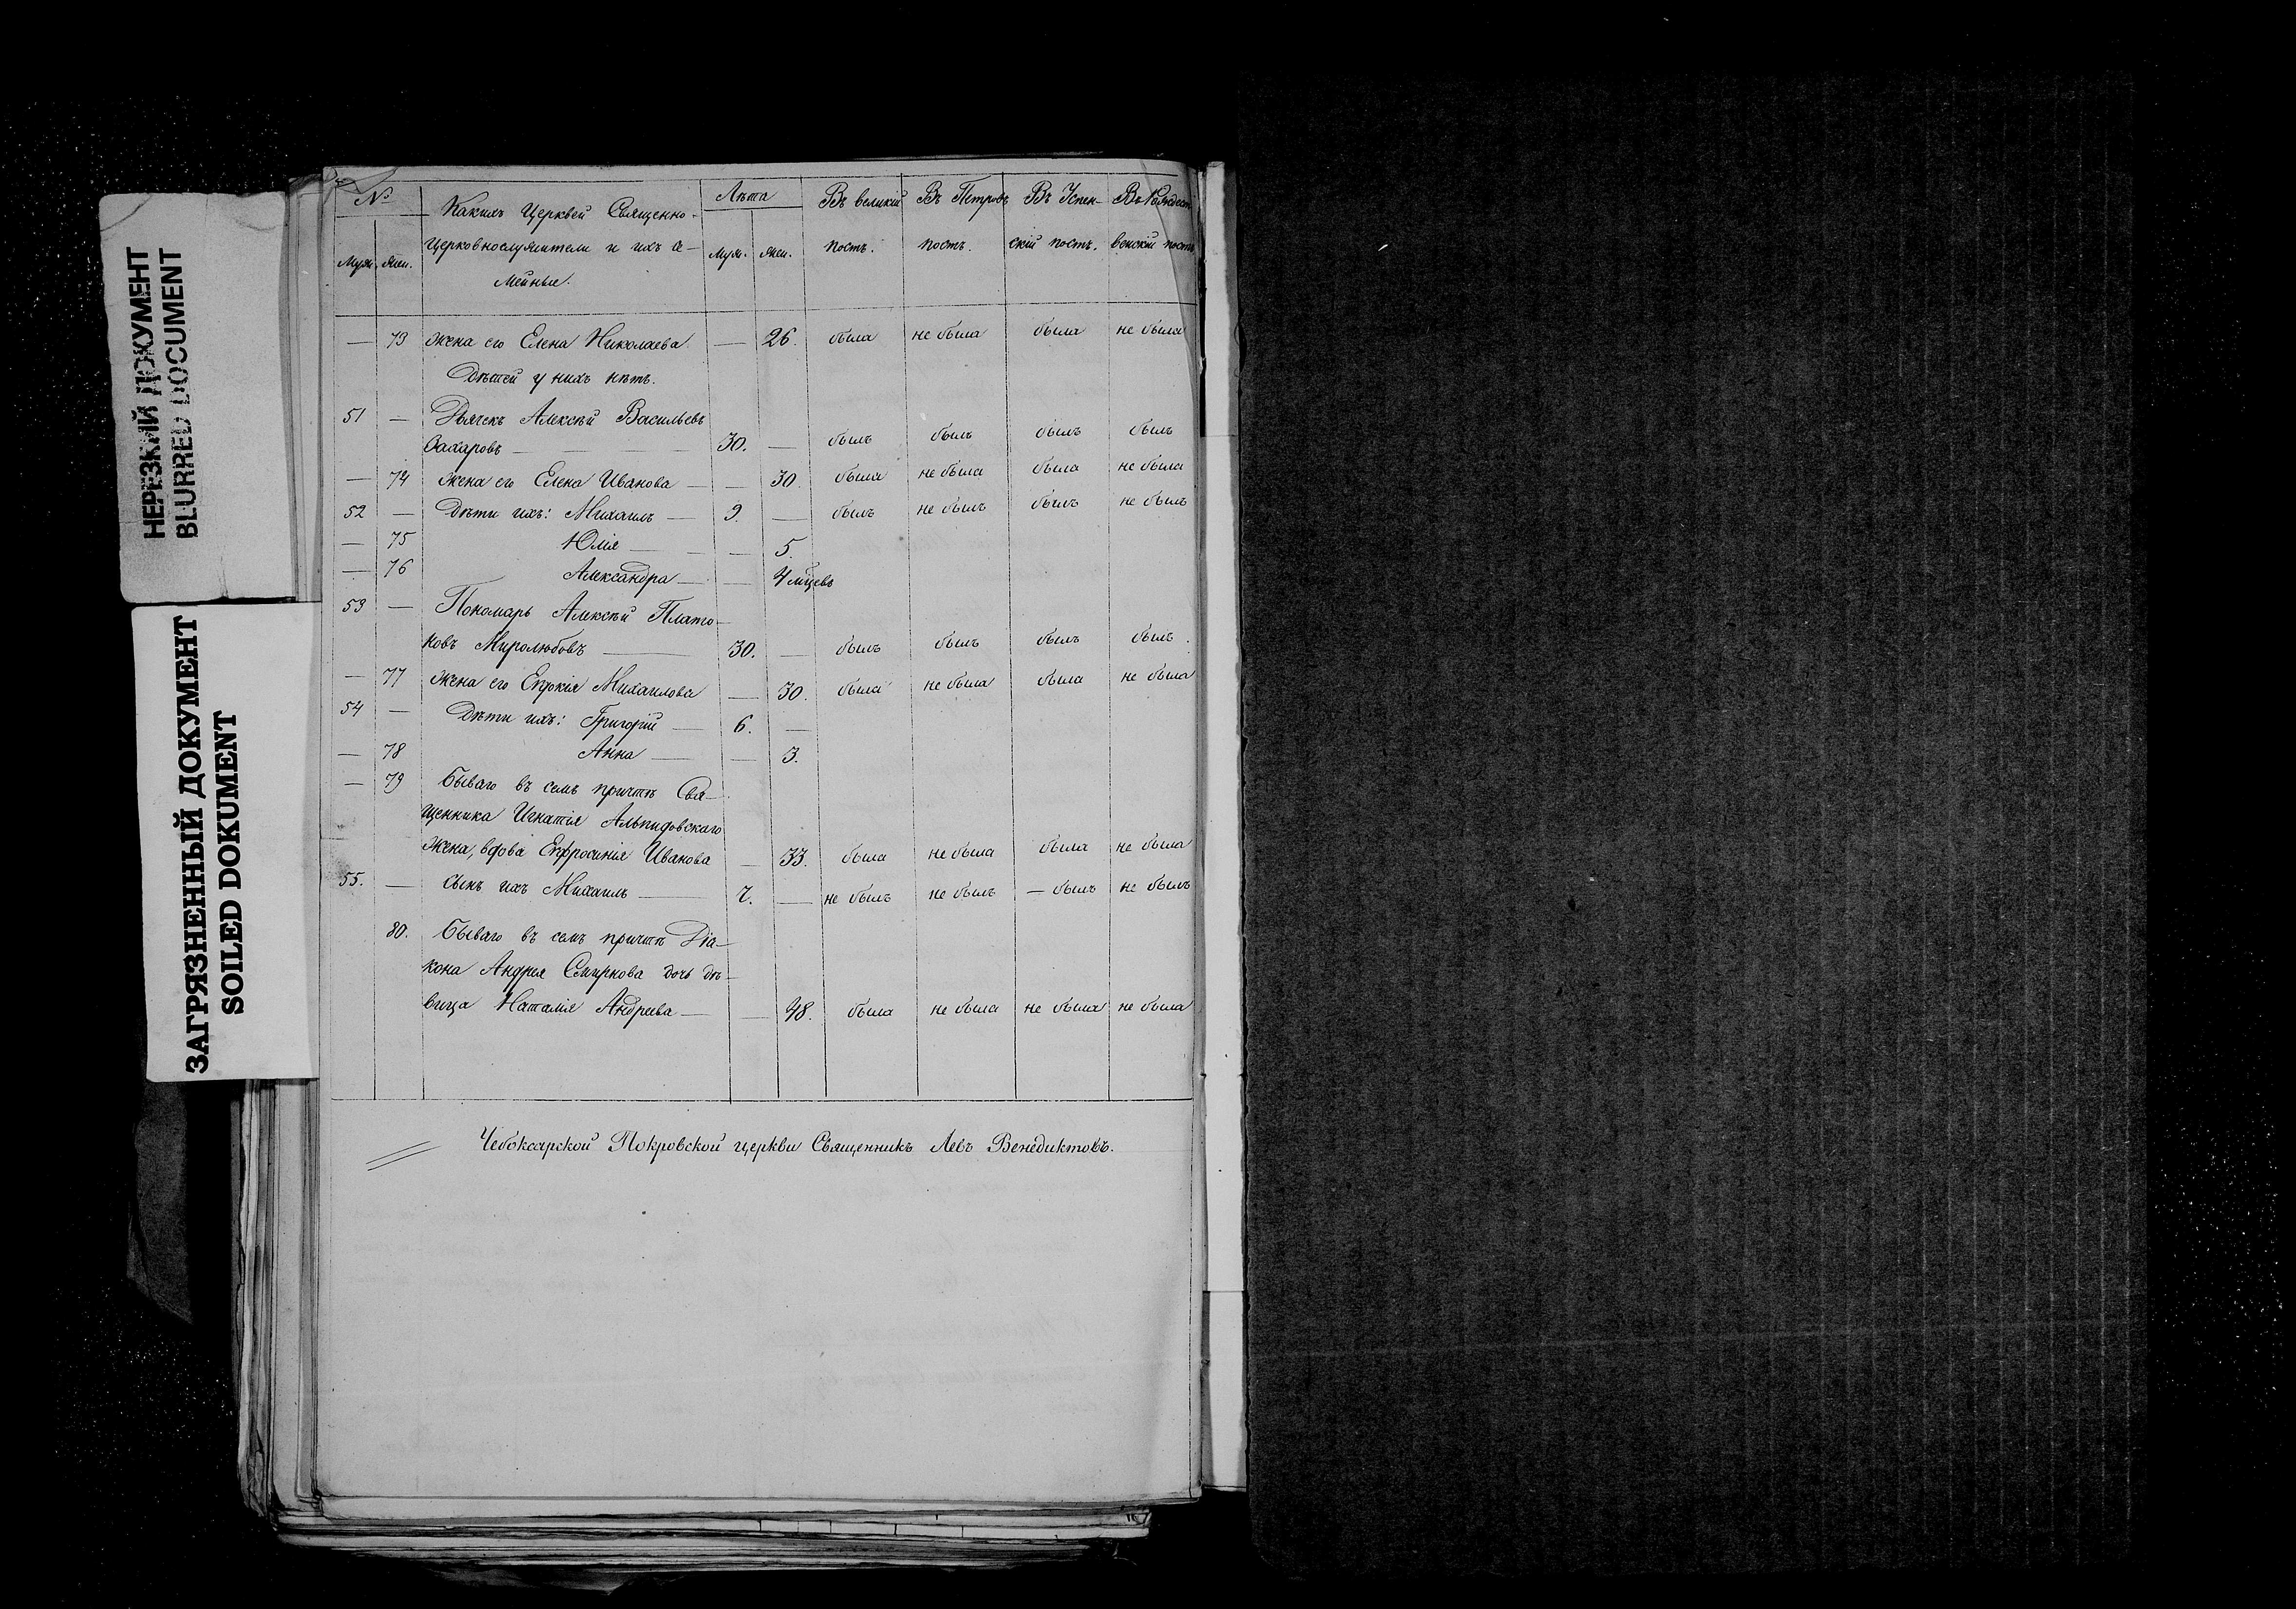 НЕРЕЗКИЙ ДОКУМЕНТ
BLURRED DOCUMENT
ЗАГРЯЗНЕННЫЙ ДОКУМЕНТ
SOILED DOKUMENT
№ Какихъ Церквей Священно- Лѣта Въ великій Въ Петровъ Въ Успен- Въ Рождест
Муж. Жен. Церковнослужители и ихъ се- Муж. Жен. постъ. постъ. скій постъ. венскій постъ
мейные.
— 73 жена его Елена Николаева — 26. была не была была не была
Дѣтей у нихъ нѣтъ.
51 — Дьячекъ Алексѣй Васильевъ
Захаровъ — 30. — былъ былъ былъ былъ
— 74 Жена его Елена Иванова — — 30. была не была была не была
52 — Дѣти ихъ: Михаилъ — 9. — былъ не былъ былъ не былъ
— 75 Юлія — — 5.
— 76 Александра — — 4 мцевъ
53 — Пономарь Алексѣй Плато-
новъ Миролюбовъ — 30. — былъ былъ былъ былъ.
— 77 Жена его Михаилова — 30. была не была была не была
54 — Дѣти ихъ: Григорій — 6. —
— 78 Анна — — 3.
— 79 Бываго въ семъ причтѣ Свя-
щенника Игнатія Альпидовскаго
— жена, вдова Ефросинія Иванова — 33. была не была была не была
55. — сынъ ихъ Михаилъ — 7. — не былъ не былъ — былъ не былъ
80. Бываго въ семъ причтѣ Діа-
кона Андрея Смирнова дочь дѣ-
вица Наталія Андреева — — 48. была не была не была не была
Чебоксарской Покровской церкви Священникъ Левъ Венедиктовъ.